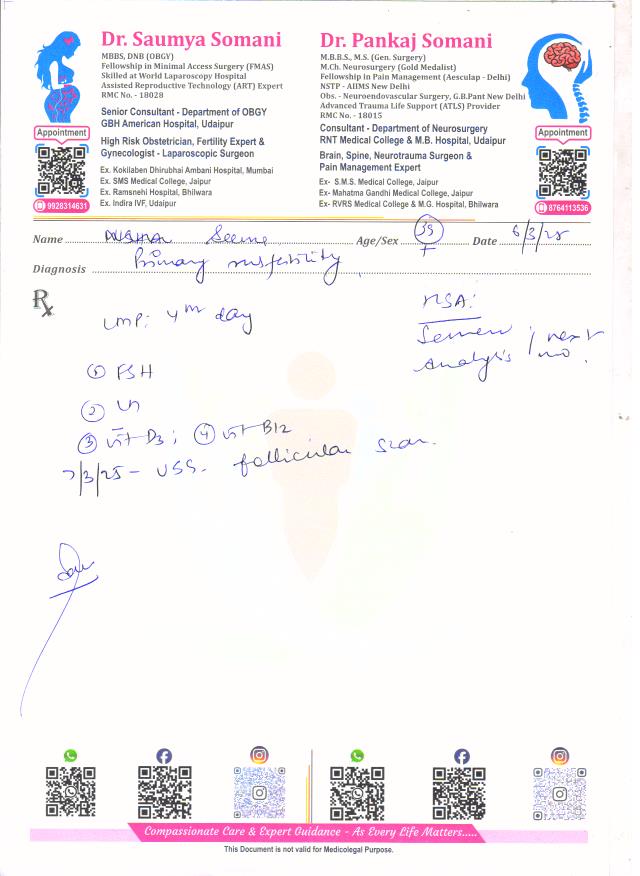 Dr. Saumya Somani
MBBS, DNB (OBGY)
Fellowship in Minimal Access Surgery (FMAS)
Skilled at World Laparoscopy Hospital
Assisted Reproductive Technology (ART) Expert
RMC No. - 18028
Senior Consultant - Department of OBGY
GBH American Hospital, Udaipur
High Risk Obstetrician, Fertility Expert &
Gynecologist - Laparoscopic Surgeon
Ex. Kokilaben Dhirubhai Ambani Hospital, Mumbai
Ex. SMS Medical College, Jaipur
Ex. Ramsnehi Hospital, Bhilwara
Ex. Indira IVF, Udaipur
Appointment
9928314631
Dr. Pankaj Somani
M.B.B.S., M.S. (Gen. Surgery)
M.Ch. Neurosurgery (Gold Medalist)
Fellowship in Pain Management (Aesculap - Delhi)
NSTP - AIIMS New Delhi
Obs. - Neuroendovascular Surgery, G.B.Pant New Delhi
Advanced Trauma Life Support (ATLS) Provider
RMC No. - 18015
Consultant - Department of Neurosurgery
RNT Medical College & M.B. Hospital, Udaipur
Brain, Spine, Neurotrauma Surgeon &
Pain Management Expert
Ex- S.M.S. Medical College, Jaipur
Ex- Mahatma Gandhi Medical College, Jaipur
Ex- RVRS Medical College & M.G. Hospital, Bhilwara
Appointment
8764113536
Name Age/Sex F Date 6/3/25
Diagnosis Primary infertility
Rx
LMP: 4th day
HSA:
Semen
Analysis / next
mo.
① FSH
② LH
③ Vit D3; ④ Vit B12
7/3/25 - USS. follicular scan.
Compassionate Care & Expert Guidance - As Every Life Matters.....
This Document is not valid for Medicolegal Purpose.